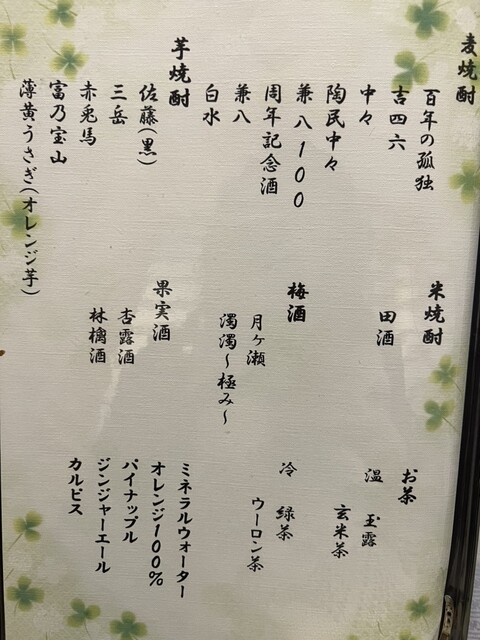 麦焼酎
百年の孤独
吉四六
中々
陶眠中々
兼八100
周年記念酒
兼八
白水
芋焼酎
佐藤(黒)
三岳
赤兎馬
富乃宝山
薄黄うさぎ(オレンジ芋)
米焼酎
田酒
梅酒
月ヶ瀬
濁濁~極み~
果実酒
杏露酒
林檎酒
お茶
温 玉露
玄米茶
冷 緑茶
ウーロン茶
ミネラルウォーター
オレンジ100%
パイナップル
ジンジャーエール
カルピス